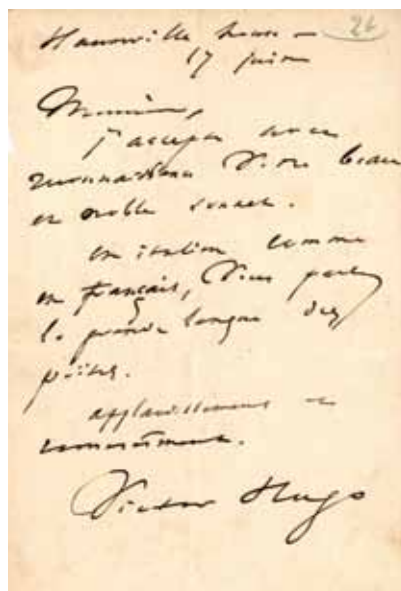 26
Hauteville house –
17 juin
Monsieur,
j'accepte avec
reconnaissance Votre beau
et noble sonnet.
en italien comme
en français, Vous parlez
la grande langue des
poëtes.
applaudissement et
remercîment.
Victor Hugo